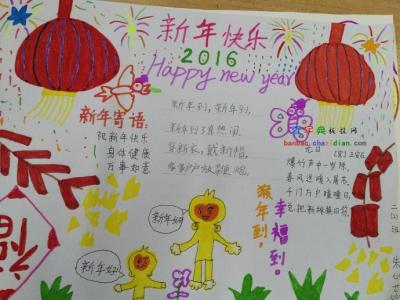 新年快乐
2016
Happy new year
新年寄语:
祝新年快乐
身体健康
万事如意
新年到,新年到,
新年到了真热闹.
穿新衣,戴新帽,
家家户户放鞭炮.
查字典 板报网
banbao.chazidian.com
元日 [宋]王安石
爆竹声中一岁除,
春风送暖入屠苏.
千门万户曈曈日,
总把新桃换旧符.
猴年到。
幸福到。
新年好!
新年好!
福
二(2)班